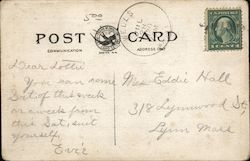 POST CARD
COMMUNICATION
ADDRESS ONLY
Dear Lottie
You can come
Sat of this week
or a week from
this Sat, suit
yourself,
Mrs Eddie Hall
318 Lynnwood St,
Lynn Mass
1 CENT 1